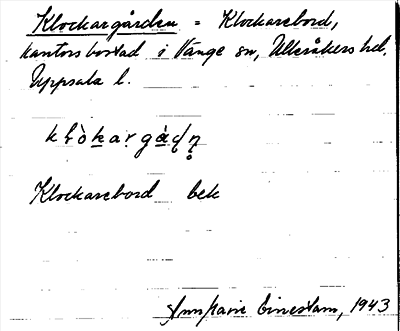 Klockargården = Klockarebord,
kantorsbostad i Vänge sn, Ulleråkers hd,
Uppsala l.
klòkargàḍṇ
Klockarebord bek
Ann Marie Einestam, 1943